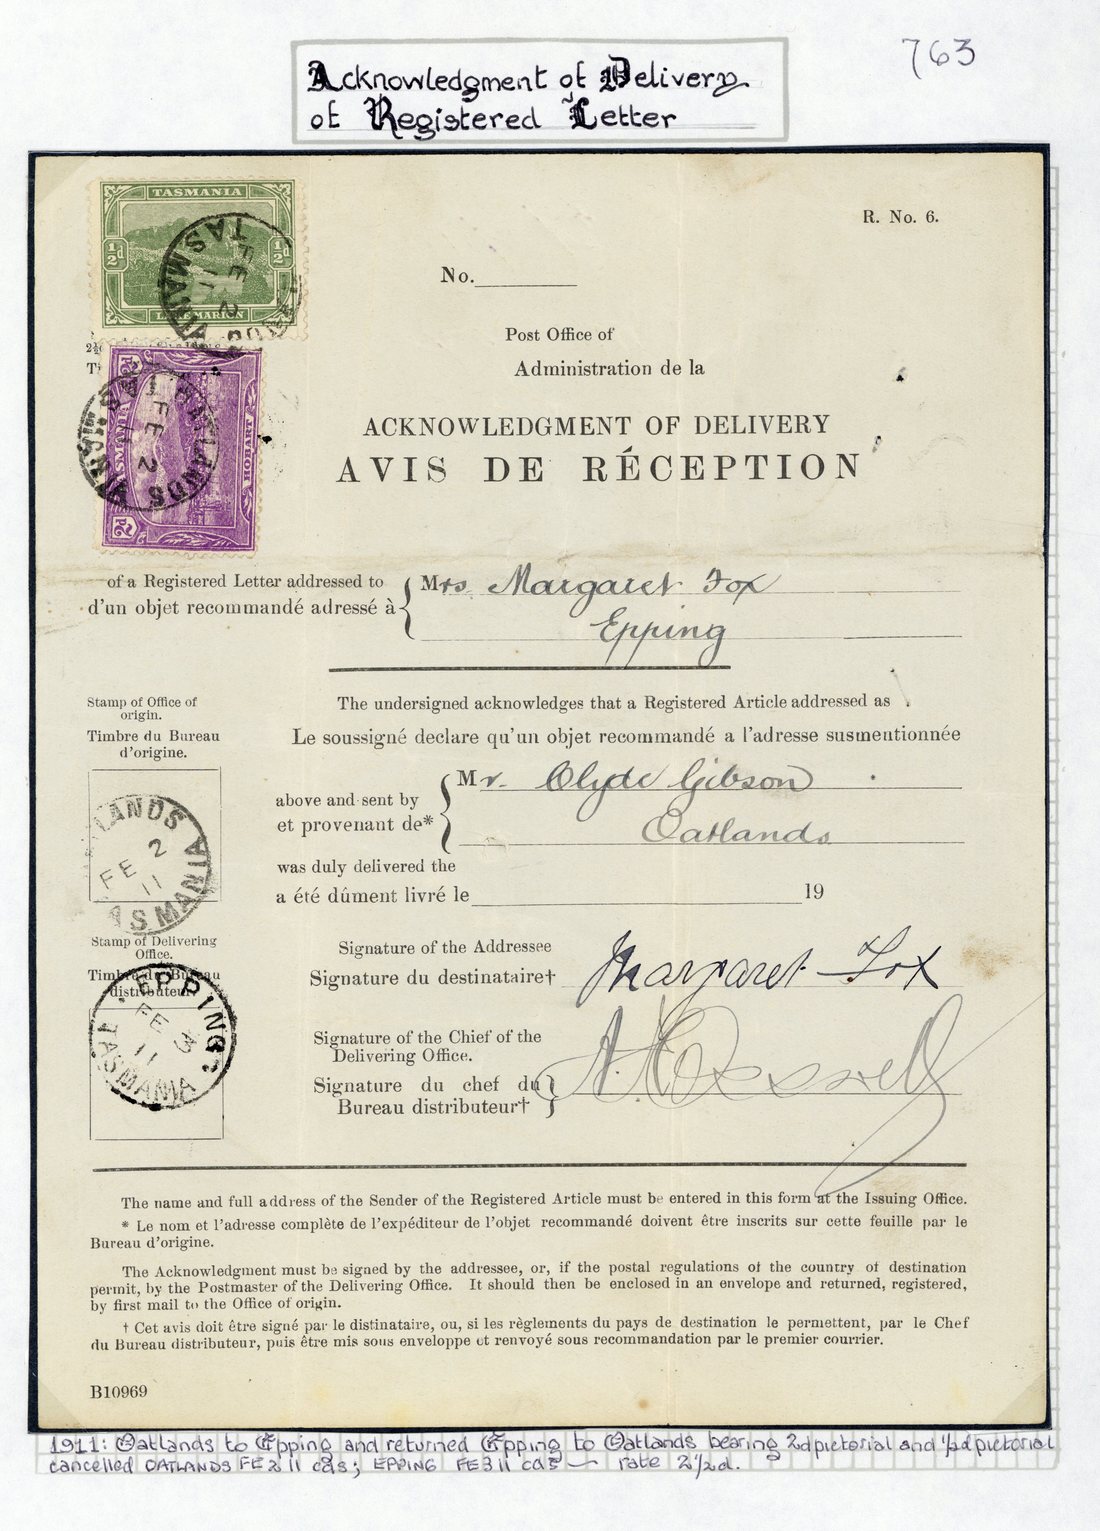 763
Acknowledgment of Delivery
of Registered Letter
R. No. 6.
TASMANIA
½d ½d
LAKE MARION
TASMANIA
FE 2
11
No.
Post Office of
Administration de la
2d
TASMANIA
HOBART
2d
OATLANDS
FE 2
11
TASMANIA
ACKNOWLEDGMENT OF DELIVERY
AVIS DE RÉCEPTION
of a Registered Letter addressed to
d'un objet recommandé adressé à
Mrs. Margaret Fox
Epping
Stamp of Office of
origin.
Timbre du Bureau
d'origine.
The undersigned acknowledges that a Registered Article addressed as
Le soussigné declare qu'un objet recommandé a l'adresse susmentionnée
above and sent by
et provenant de*
Mr. Clyde Gibson
Oatlands
TLANDS
FE 2
11
TASMANIA
was duly delivered the
a été dûment livré le 19
Stamp of Delivering
Office.
Timbre du Bureau
distributeur.
EPPING
FE 3
11
TASMANIA
Signature of the Addressee
Signature du destinataire†
Margaret Fox
Signature of the Chief of the
Delivering Office.
Signature du chef du
Bureau distributeur†
The name and full address of the Sender of the Registered Article must be entered in this form at the Issuing Office.
* Le nom et l'adresse complète de l'expéditeur de l'objet recommandé doivent être inscrits sur cette feuille par le
Bureau d'origine.
The Acknowledgment must be signed by the addressee, or, if the postal regulations of the country of destination
permit, by the Postmaster of the Delivering Office. It should then be enclosed in an envelope and returned, registered,
by first mail to the Office of origin.
† Cet avis doit être signé par le distinataire, ou, si les règlements du pays de destination le permettent, par le Chef
du Bureau distributeur, puis être mis sous enveloppe et renvoyé sous recommandation par le premier courrier.
B10969
1911: Oatlands to Epping and returned Epping to Oatlands bearing 2d pictorial and ½d pictorial
cancelled OATLANDS FE 2 11 cds; EPPING FE 3 11 cds — rate 2½d.